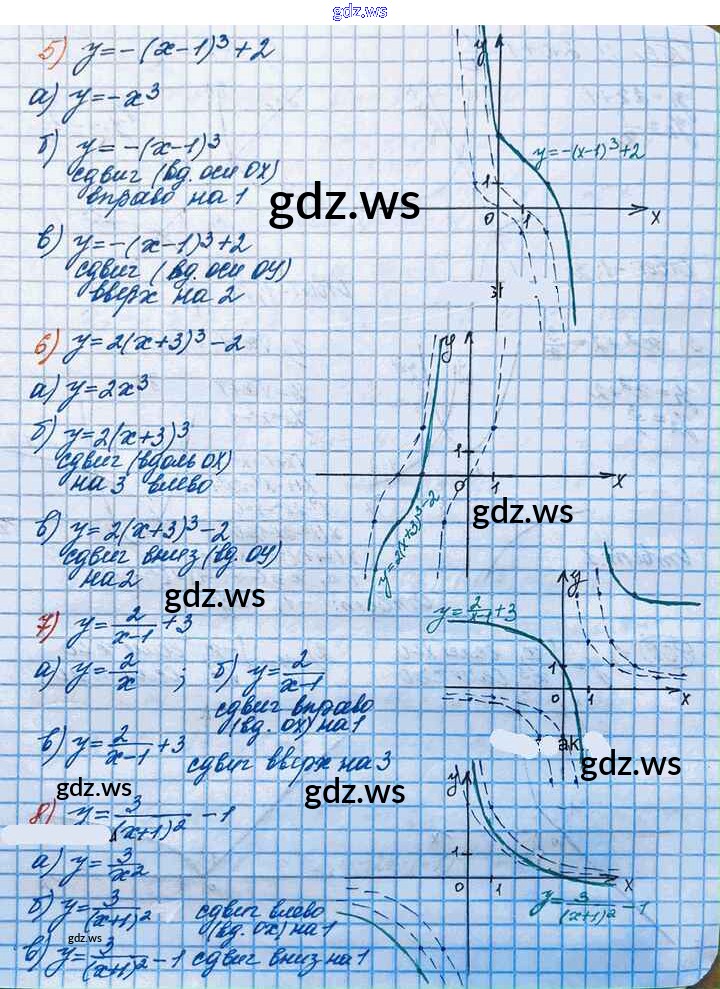 gdz.ws
5) y=-(x-1)³+2
а) y=-x³
б) y=-(x-1)³
сдвиг (вд. оси OX)
вправо на 1
в) y=-(x-1)³+2
сдвиг (вд. оси OY)
вверх на 2
y
y=-(x-1)³+2
1
0 1 x
gdz.ws
6) y=2(x+3)³-2
а) y=2x³
б) y=2(x+3)³
сдвиг (вдоль OX)
на 3 влево
в) y=2(x+3)³-2
сдвиг вниз (вд. OY)
на 2
y
1
0 1 x
y=2(x+3)³-2
gdz.ws
gdz.ws
7) y=2/(x-1)+3
а) y=2/x ; б) y=2/(x-1)
сдвиг вправо
(вд. OX) на 1
в) y=2/(x-1)+3
сдвиг вверх на 3
y
y=2/(x-1)+3
1
0 1 x
ak
gdz.ws
gdz.ws
gdz.ws
8) y=3/(x+1)²-1
а) y=3/x²
б) y=3/(x+1)² сдвиг влево
(вд. OX) на 1
в) y=3/(x+1)²-1 сдвиг вниз на 1
y
1
0 1 x
y=3/(x+1)²-1
gdz.ws